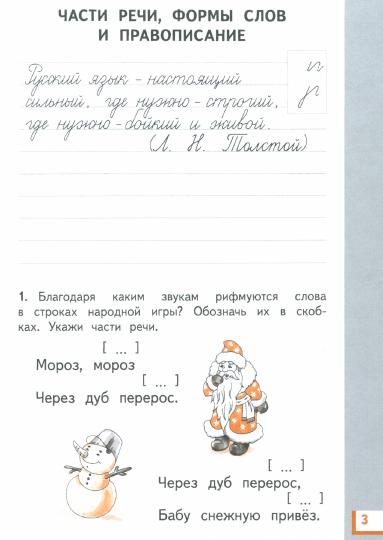 ЧАСТИ РЕЧИ, ФОРМЫ СЛОВ
И ПРАВОПИСАНИЕ
Русский язык – настоящий
сильный, где нужно – строгий,
где нужно – бойкий и живой.
(Л. Н. Толстой)
1. Благодаря каким звукам рифмуются слова
в строках народной игры? Обозначь их в скоб-
ках. Укажи части речи.
[ ... ]
Мороз, мороз
[ ... ]
Через дуб перерос.
[ ... ]
Через дуб перерос,
[ ... ]
Бабу снежную привёз.
3